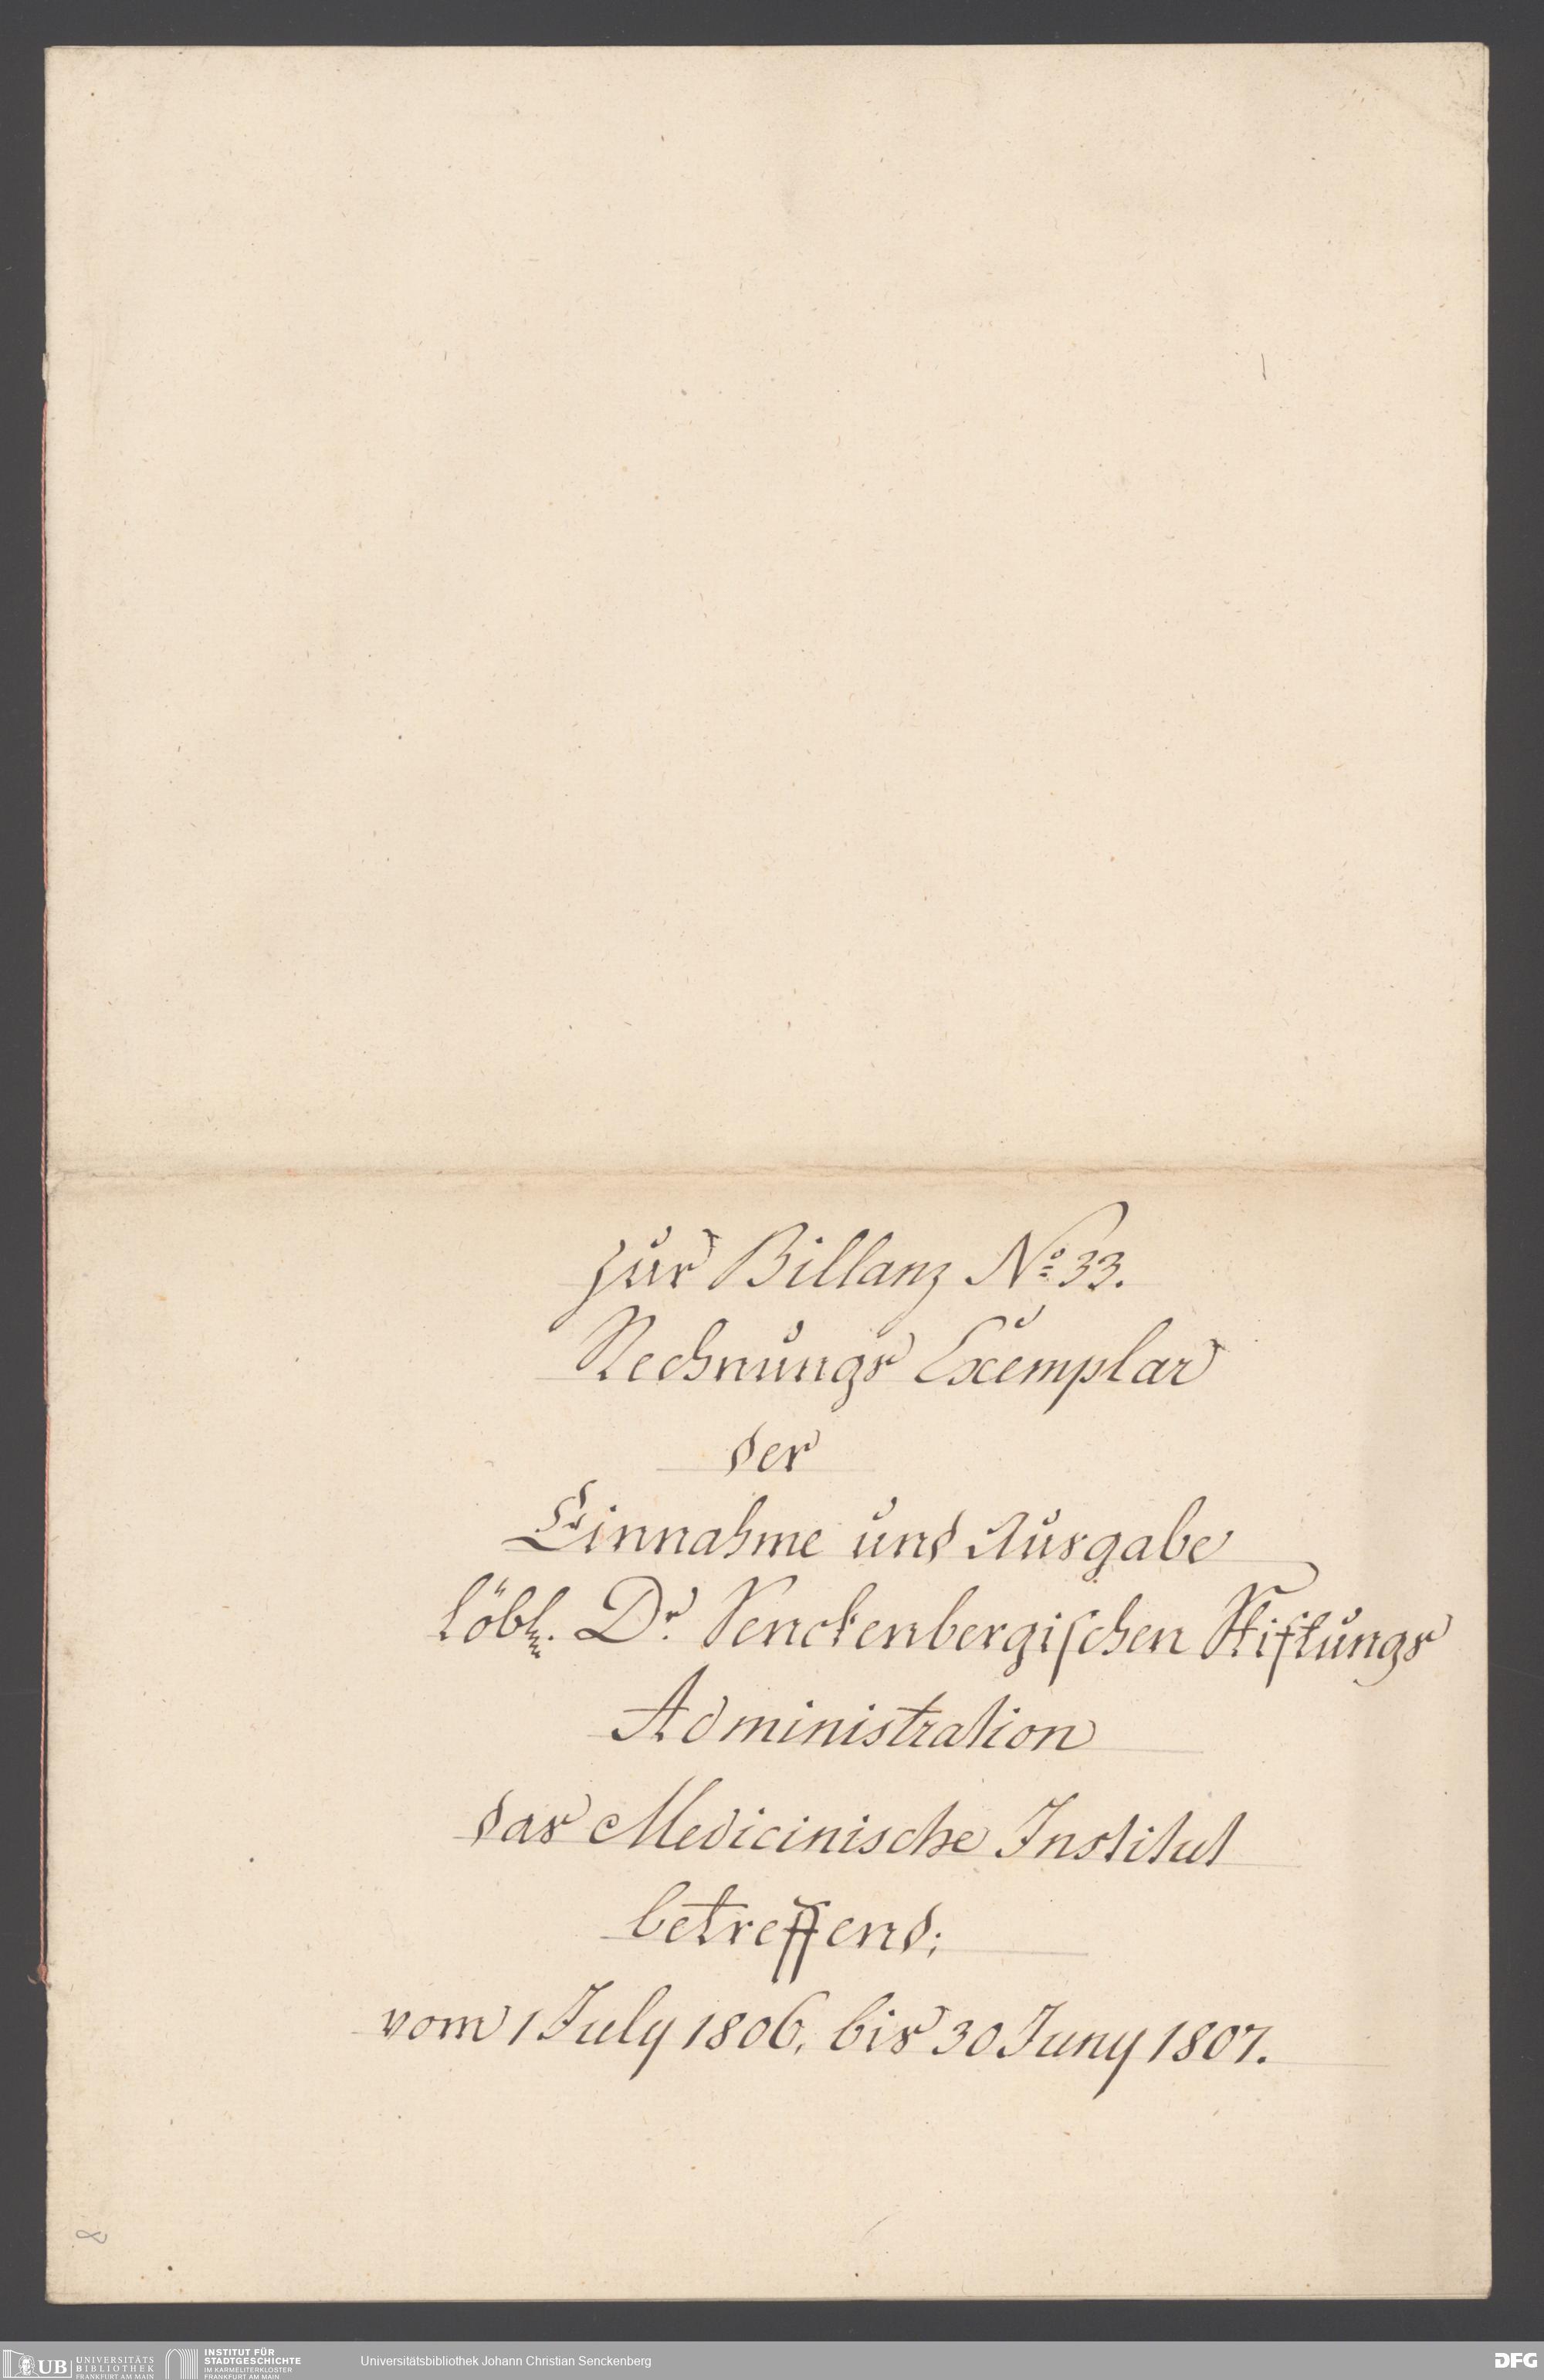 zur Billanz No 33.
Rechnungs Exemplar
der
Einnahme und Ausgabe
löbl. Dr Senckenbergischen Stiftungs
Administration
das Medicinische Institut
betreffend;
vom 1 July 1806. bis 30 Juny 1807.
8
UB UNIVERSITÄTS BIBLIOTHEK FRANKFURT AM MAIN
INSTITUT FÜR STADTGESCHICHTE IM KARMELITERKLOSTER FRANKFURT AM MAIN
Universitätsbibliothek Johann Christian Senckenberg
DFG